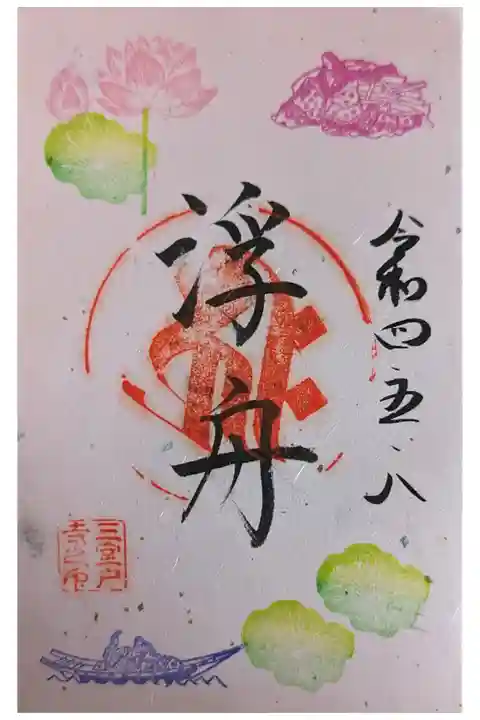 令和四 五、八
浮舟
三室戸
寺之印